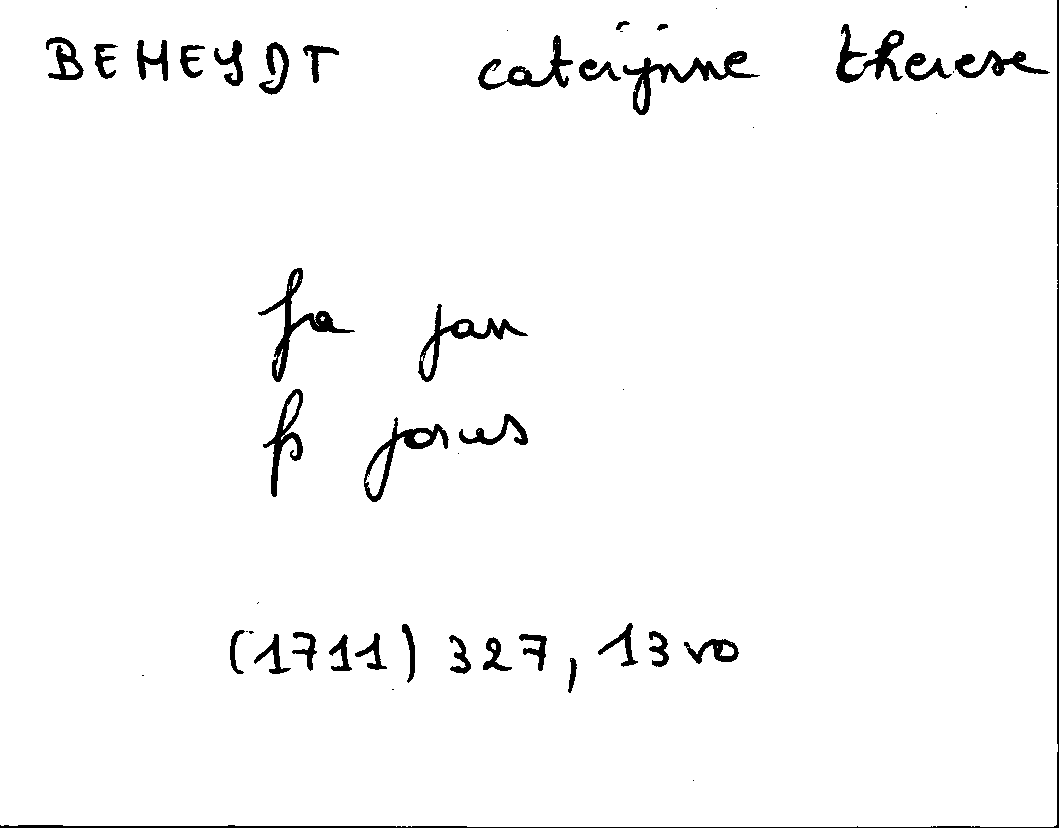 BEHEYDT caterijnne therese
fa jan
p joius
(1711) 327, 13 vo